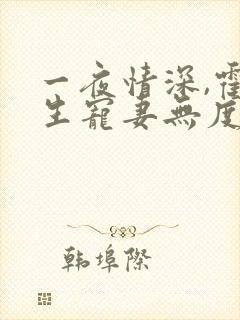 一夜情深,霍
生寵妻無度
韩埠際